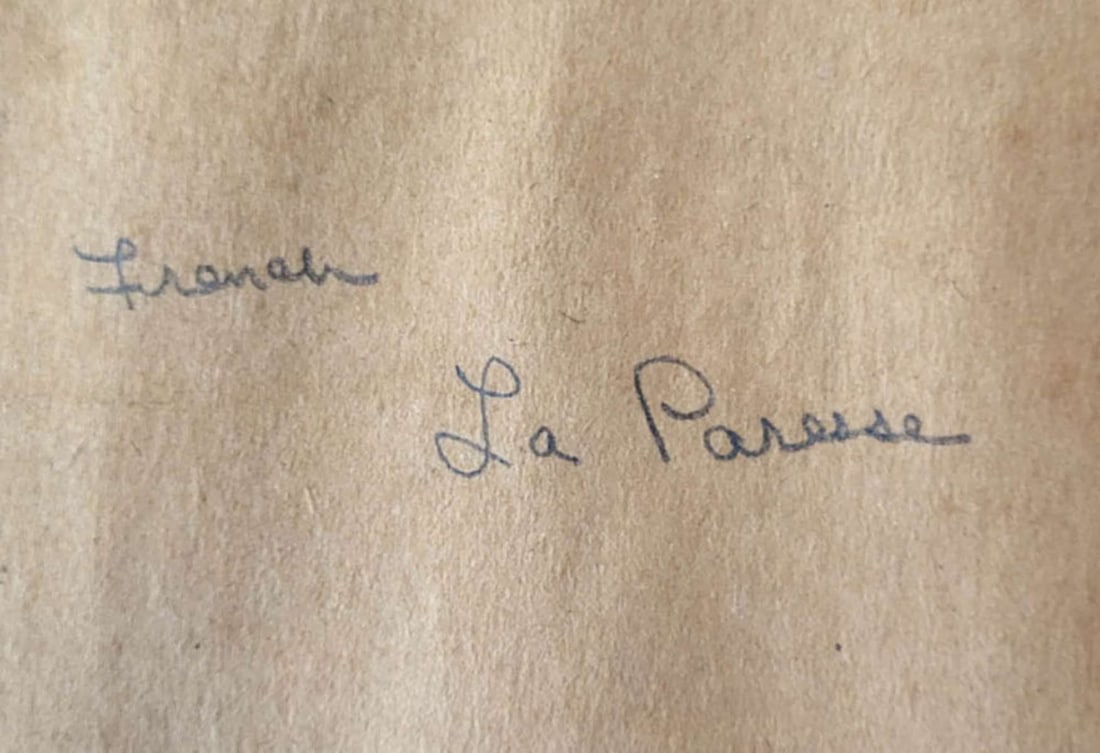 French
La Paresse